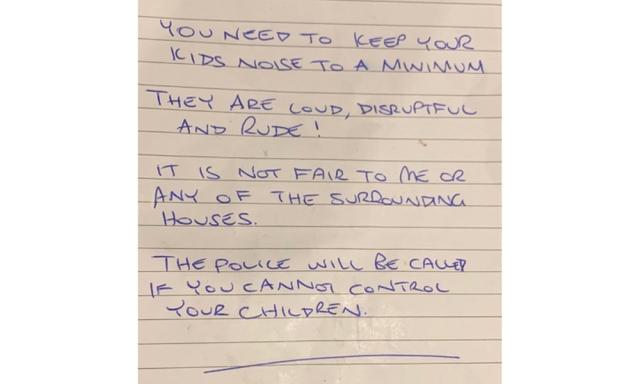 YOU NEED TO KEEP YOUR
KIDS NOISE TO A MINIMUM
THEY ARE LOUD, DISRUPTFUL
AND RUDE!
IT IS NOT FAIR TO ME OR
ANY OF THE SURROUNDING
HOUSES.
THE POLICE WILL BE CALLED
IF YOU CANNOT CONTROL
YOUR CHILDREN.